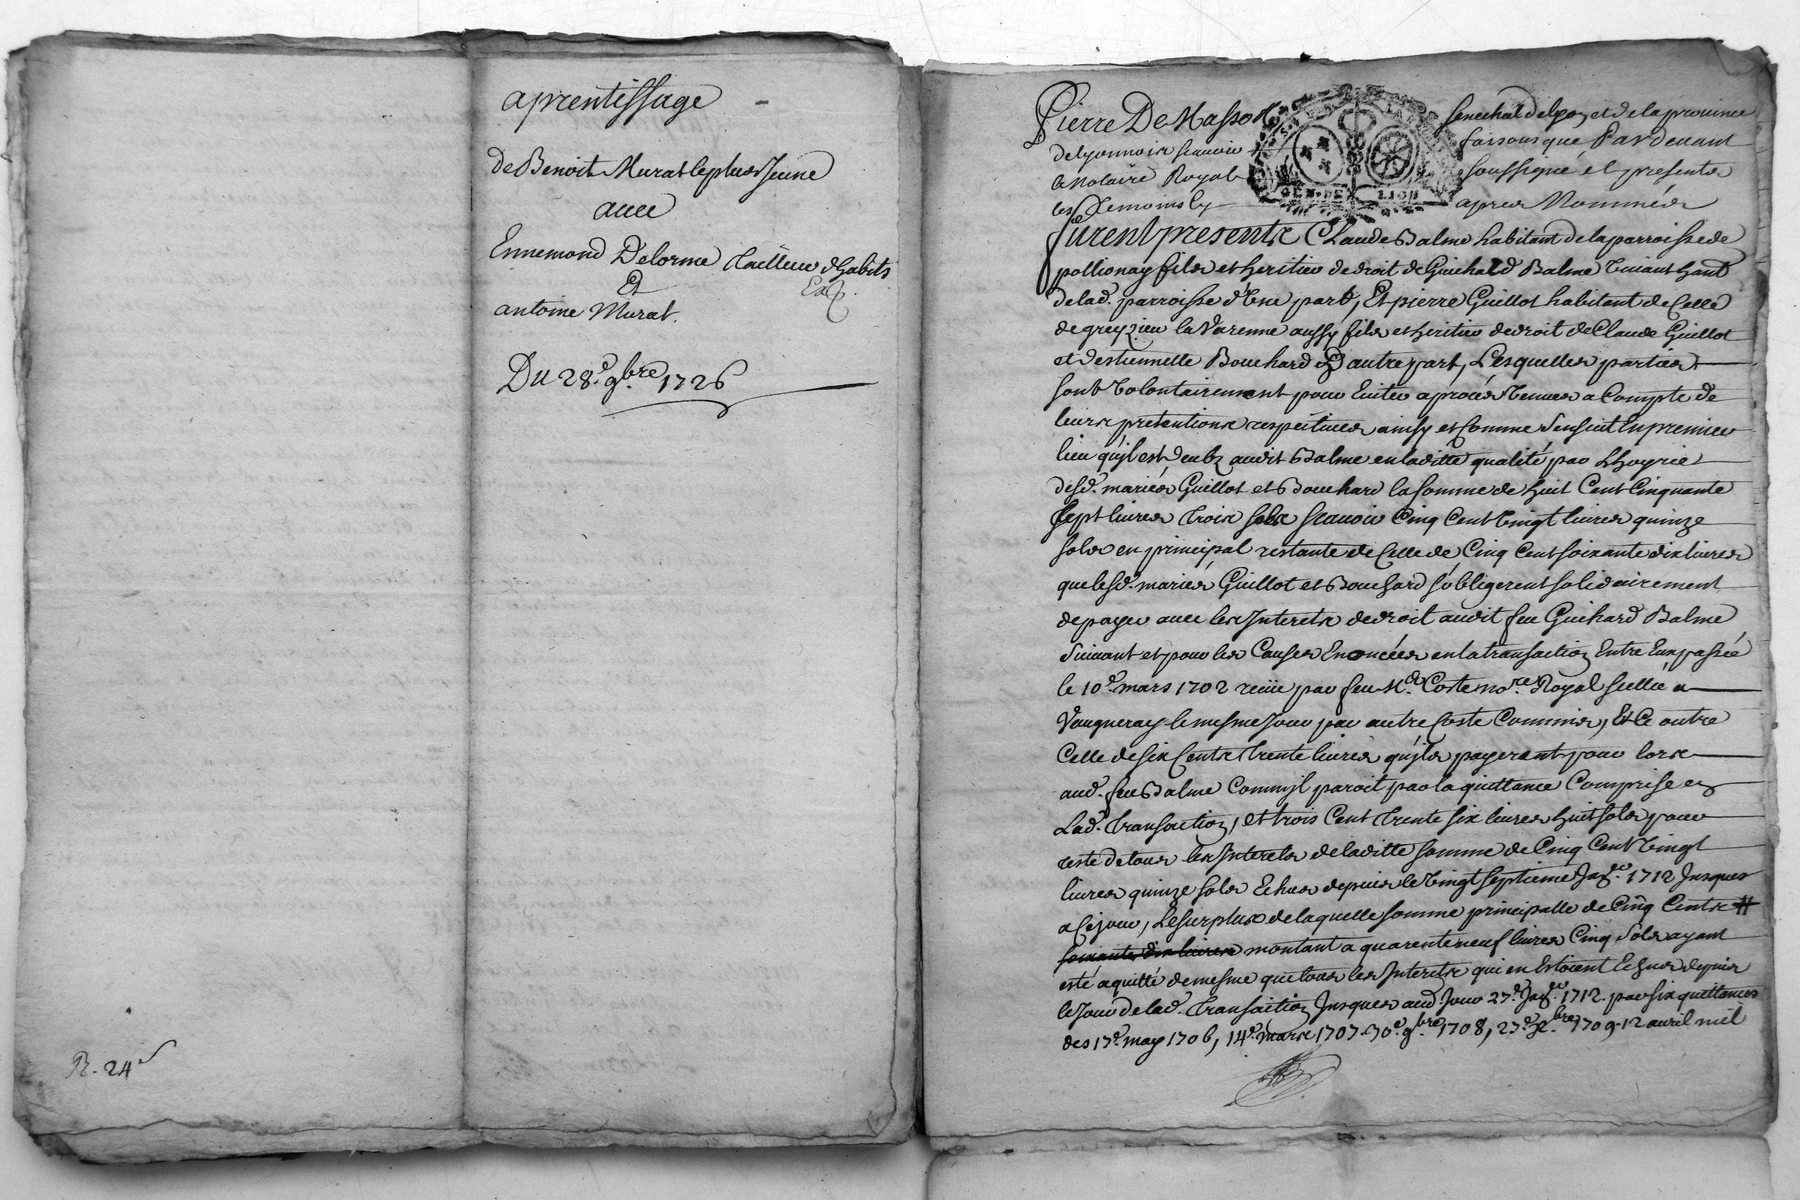 aprentissage
de Benoit Murat le plus Jeune
avec
Ennemond Delorme tailleur d'habits
Et
antoine Murat.
Du 28.e 9bre. 1726
R. 24
Pierre De Masso senechal de lyon et de la province
de lyonnois scavoir faisons que Pardevant
le Notaire Royal soussigné et presents
les temoins apres Nommés
furent presents Claude Balme habitant de la parroisse de
pollionay fils et heritier de droit de Guichard Balme vivant hant
de lad. parroisse d'Une part, Et pierre Guillot habitant de Celle
de greyzieu la Varenne aussy fils et heritier de droit de Claude Guillot
et d'estiennette Bouchard D'autre part, Lesquelles parties
sont Volontairement pour Eviter a procés Venues a Compte de
leurs pretentions respectives ainsy et Comme s'ensuit En premier
lieu qu'il est deub audit Balme en laditte qualité par L'hoyrie
desd. mariés Guillot et Bouchard la somme de huit Cent Cinquante
sept livres trois sols scavoir Cinq Cent Vingt livres quinze
sols en principal restante de Celle de Cinq Cent soixante dix livres
que lesd. mariés Guillot et Bouchard s'obligerent solidairement
de payer avec les Interets de droit audit feu Guichard Balme
suivant et pour les Causes Enoncées en la transaction Entre Eux passée
le 10.e mars 1702 reüe par feu M.e Coste no.re Royal scellée a
Vaugneray le mesme Jour par autre Coste Commis, Et Ce outre
Celle de six Cents trente livres qu'ils payerent pour lors
aud. feu Balme Comm'il paroit par la quittance Comprise en
Lad. transaction, et trois Cent trente six livres huit sols pour
reste de tous les Interets de laditte somme de Cinq Cent Vingt
livres quinze sols Echus depuis le Vingt septieme Jan.er 1712 Jusques
a Ce jour, Le surplus de laquelle somme principalle de Cinq Cents #
soixante dix livres montant a quarente neuf livres Cinq sols ayant
esté aquitté de mesme que tous les Interets qui en Estoient Echus depuis
le Jour de lad. transaction Jusques aud. Jour 27.e Jan.er 1712. par six quittances
des 17.e may 1706, 14.e mars 1707. 30.e 9bre 1708, 27.e xbre 1709. 12 avril mil
GEN. DE LION